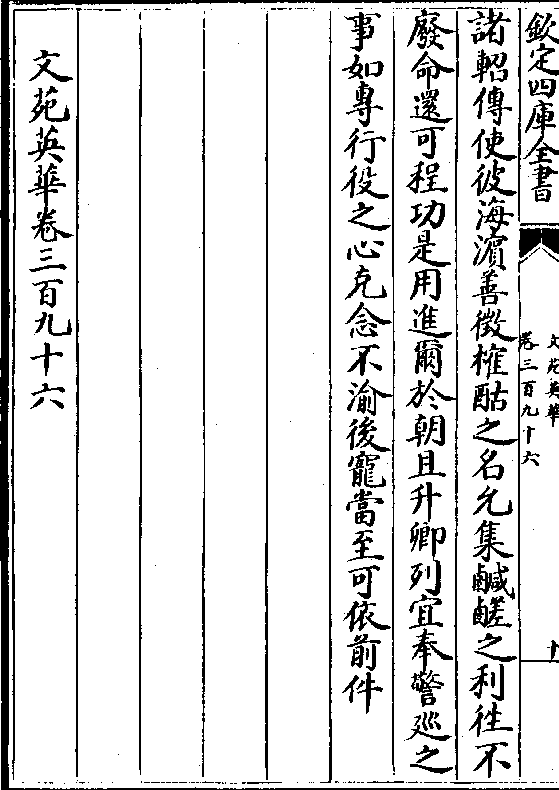 欽定四庫全書
文苑英華
卷三百九十六
十
諸軺傳使彼海濵善徵榷酤之名允集鹹鹺之利徃不
廢命還可程功是用進爾於朝且升卿列宜奉警廵之
事如專行役之心克念不渝後寵當至可依前件
文苑英華卷三百九十六